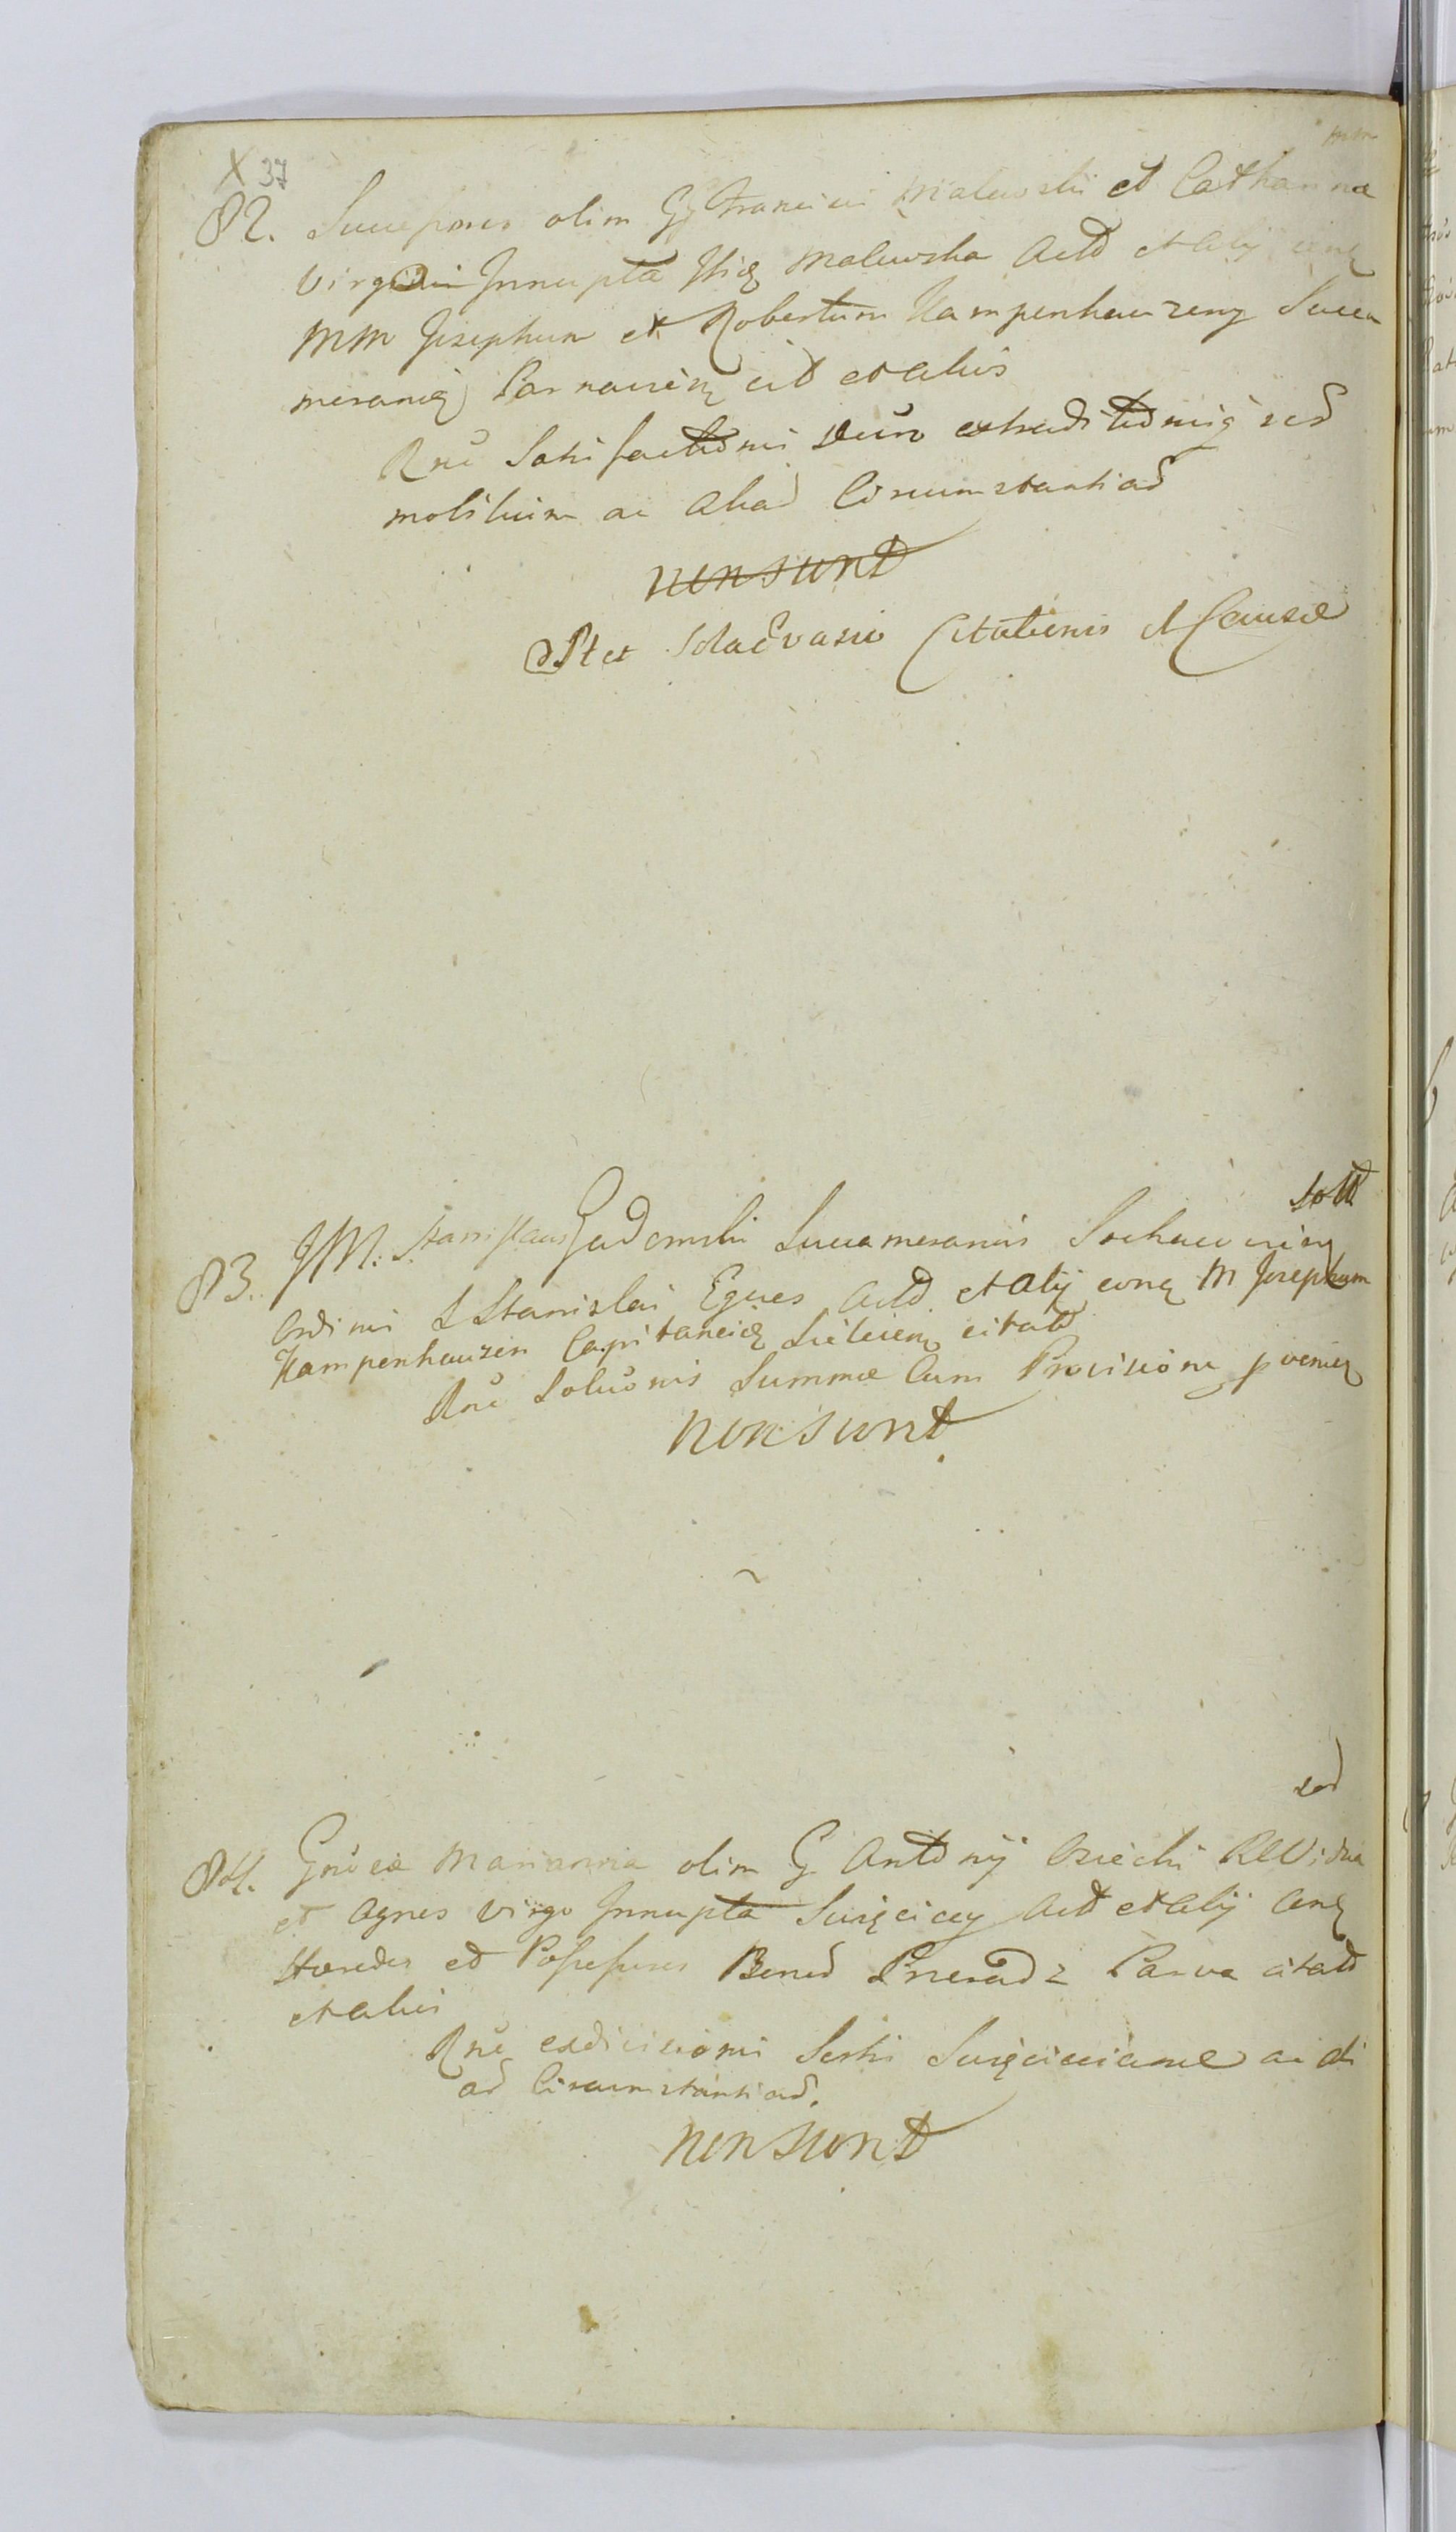 X 37
mm
82. Successores olim GG Francisci Malewski et Catharina
Virgo Innupta Malewska Actt et Alij conq
MM Josephum et Robertum Kampenhauzeny Succa
meranid Parnavien cit et alios
Rne Satisfactionis extraditionisq
mobilium ac aliad Circumstantiad
non sunt
Citationis et Causæ
Sott
83. JM. Stanislaus Gadomski Succamerarius Sochacovien
Ordinis S Stanislai Eques Actt. et Alij conq M Josephum
Kampenhauzen Capitaneid citatt
Rne Soluonis Summæ Cum Provisione pvenien
non sunt
sad
84. Gnosæ Marianna olim G Anttonij Osiecki Vidua
et Agnes Virgo Innupta Swięciccy Actt et Alij conq
Hæredes et Possessores Bonod Pnieradz Parva citatt
et alios
Rne exdivisionis Sortis Swięcicciana ac ali
ad Circumstantiad.
non sunt